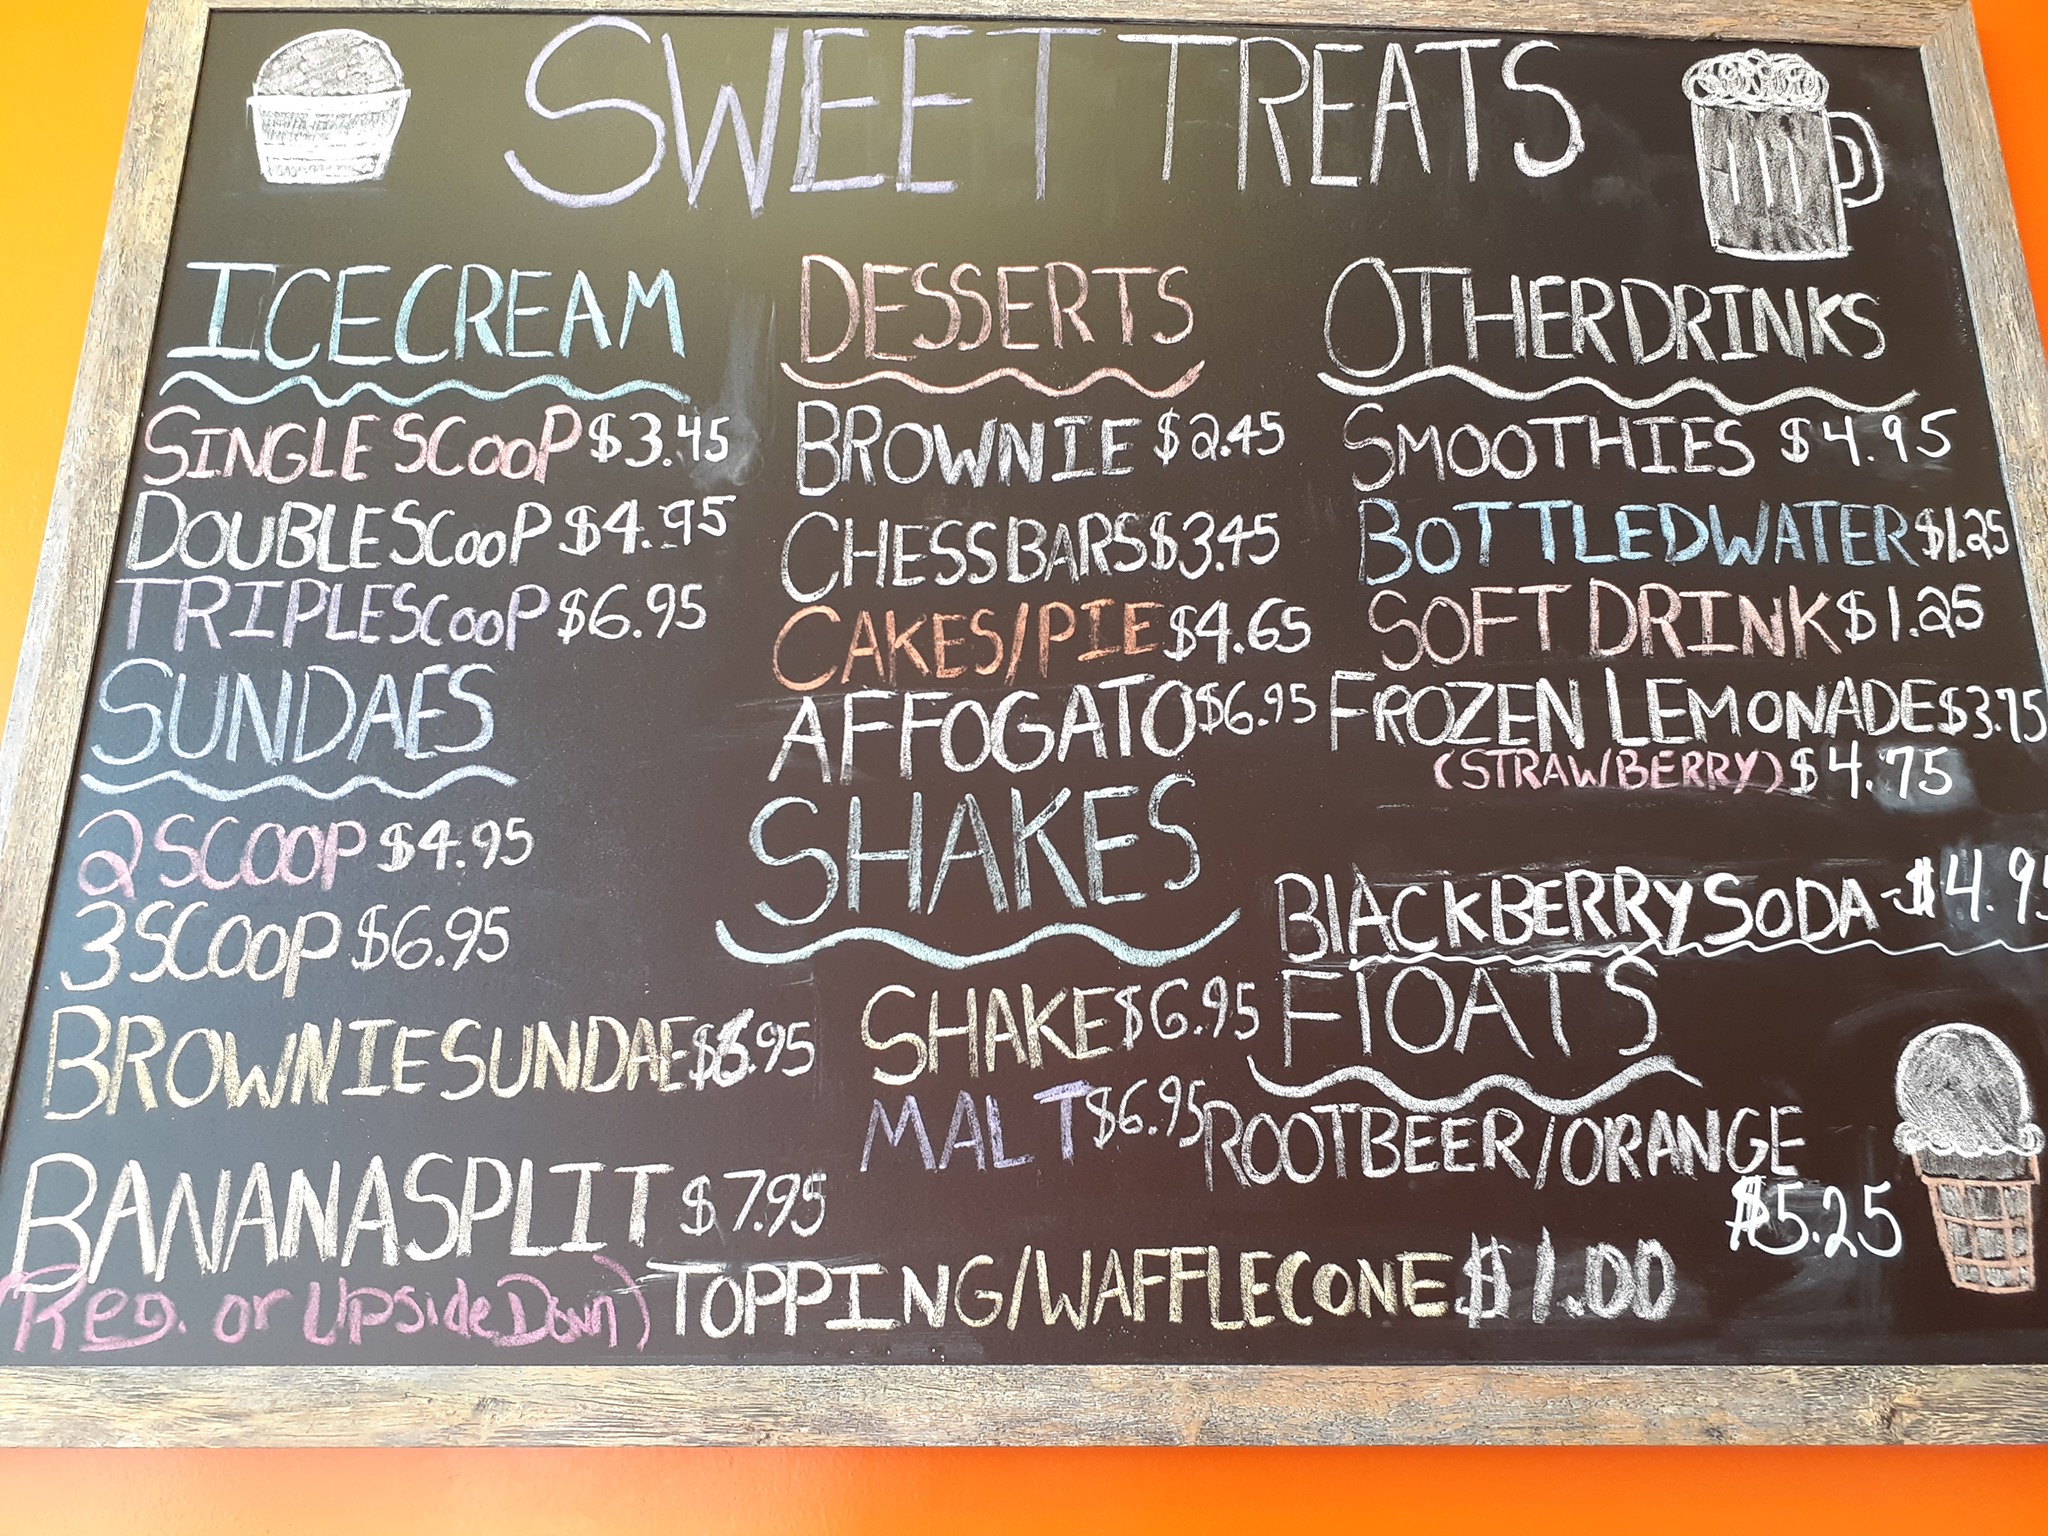 SWEET TREATS
ICE CREAM
SINGLE SCOOP $3.45
DOUBLE SCOOP $4.95
TRIPLE SCOOP $6.95
SUNDAES
2 SCOOP $4.95
3 SCOOP $6.95
BROWNIE SUNDAE $6.95
BANANA SPLIT $7.95
(Reg. or Upside Down)
DESSERTS
BROWNIE $2.45
CHESS BARS $3.45
CAKES/PIE $4.65
AFFOGATO $6.95
SHAKES
SHAKE $6.95
MALT $6.95
OTHER DRINKS
SMOOTHIES $4.95
BOTTLED WATER $1.25
SOFT DRINK $1.25
FROZEN LEMONADE $3.75
(STRAWBERRY) $4.75
BlACKBERRY SODA - $4.95
FlOATS
ROOTBEER/ORANGE
$5.25
TOPPING/WAFFLE CONE $1.00